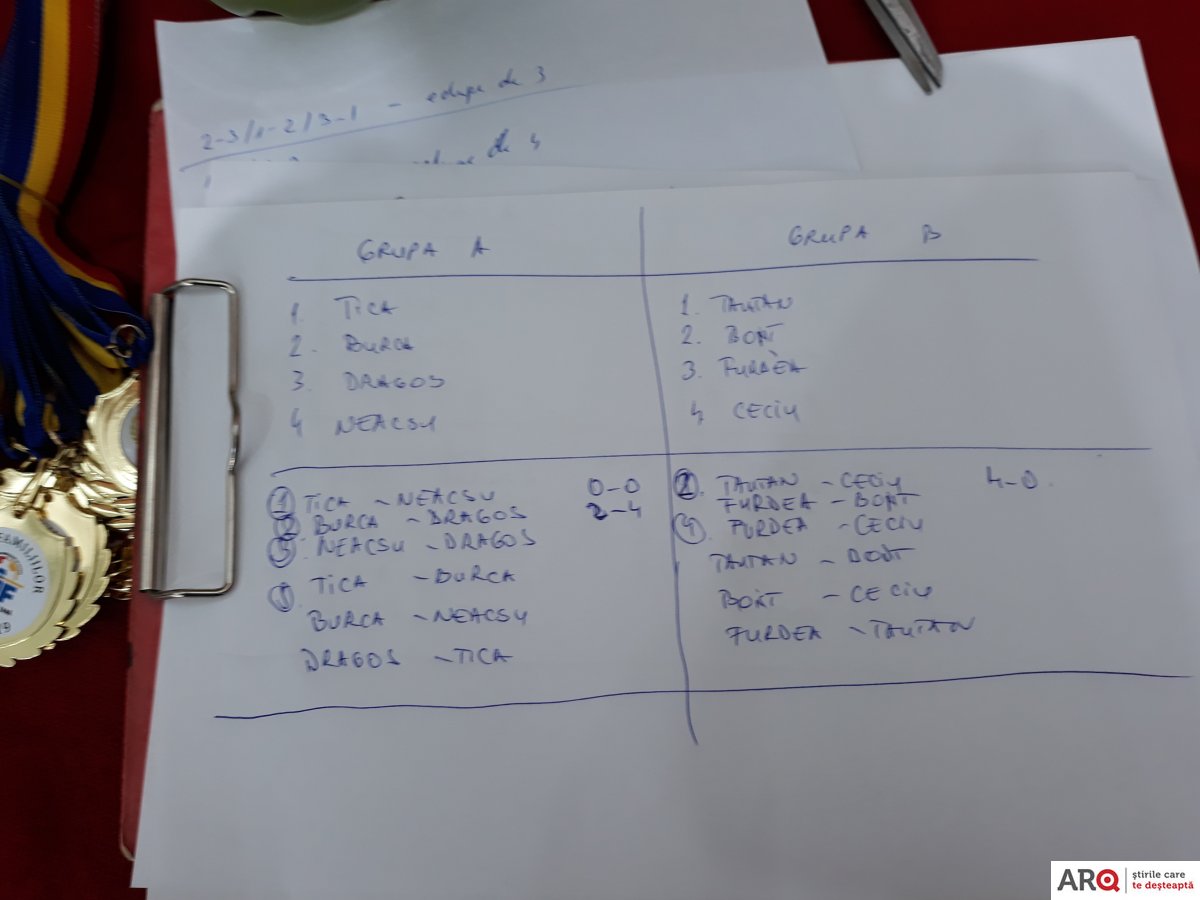 2-3/1-2/3-1 - echipe de 3
de 4
GRUPA A
1. TICA
2. BURCA
3. DRAGOS
4 NEACSU
GRUPA B
1. TAUTAN
2. BONT
3. FURDEA
4 CECIU
1 TICA - NEACSU 0-0
2 BURCA - DRAGOS 2-4
3 NEACSU - DRAGOS
TICA - BURCA
BURCA - NEACSU
DRAGOS - TICA
2. TAUTAN - CECIU 4-0
FURDEA - BONT
4. FURDEA - CECIU
TAUTAN - BONT
BONT - CECIU
FURDEA - TAUTAN
ARQ știrile care
te deșteaptă